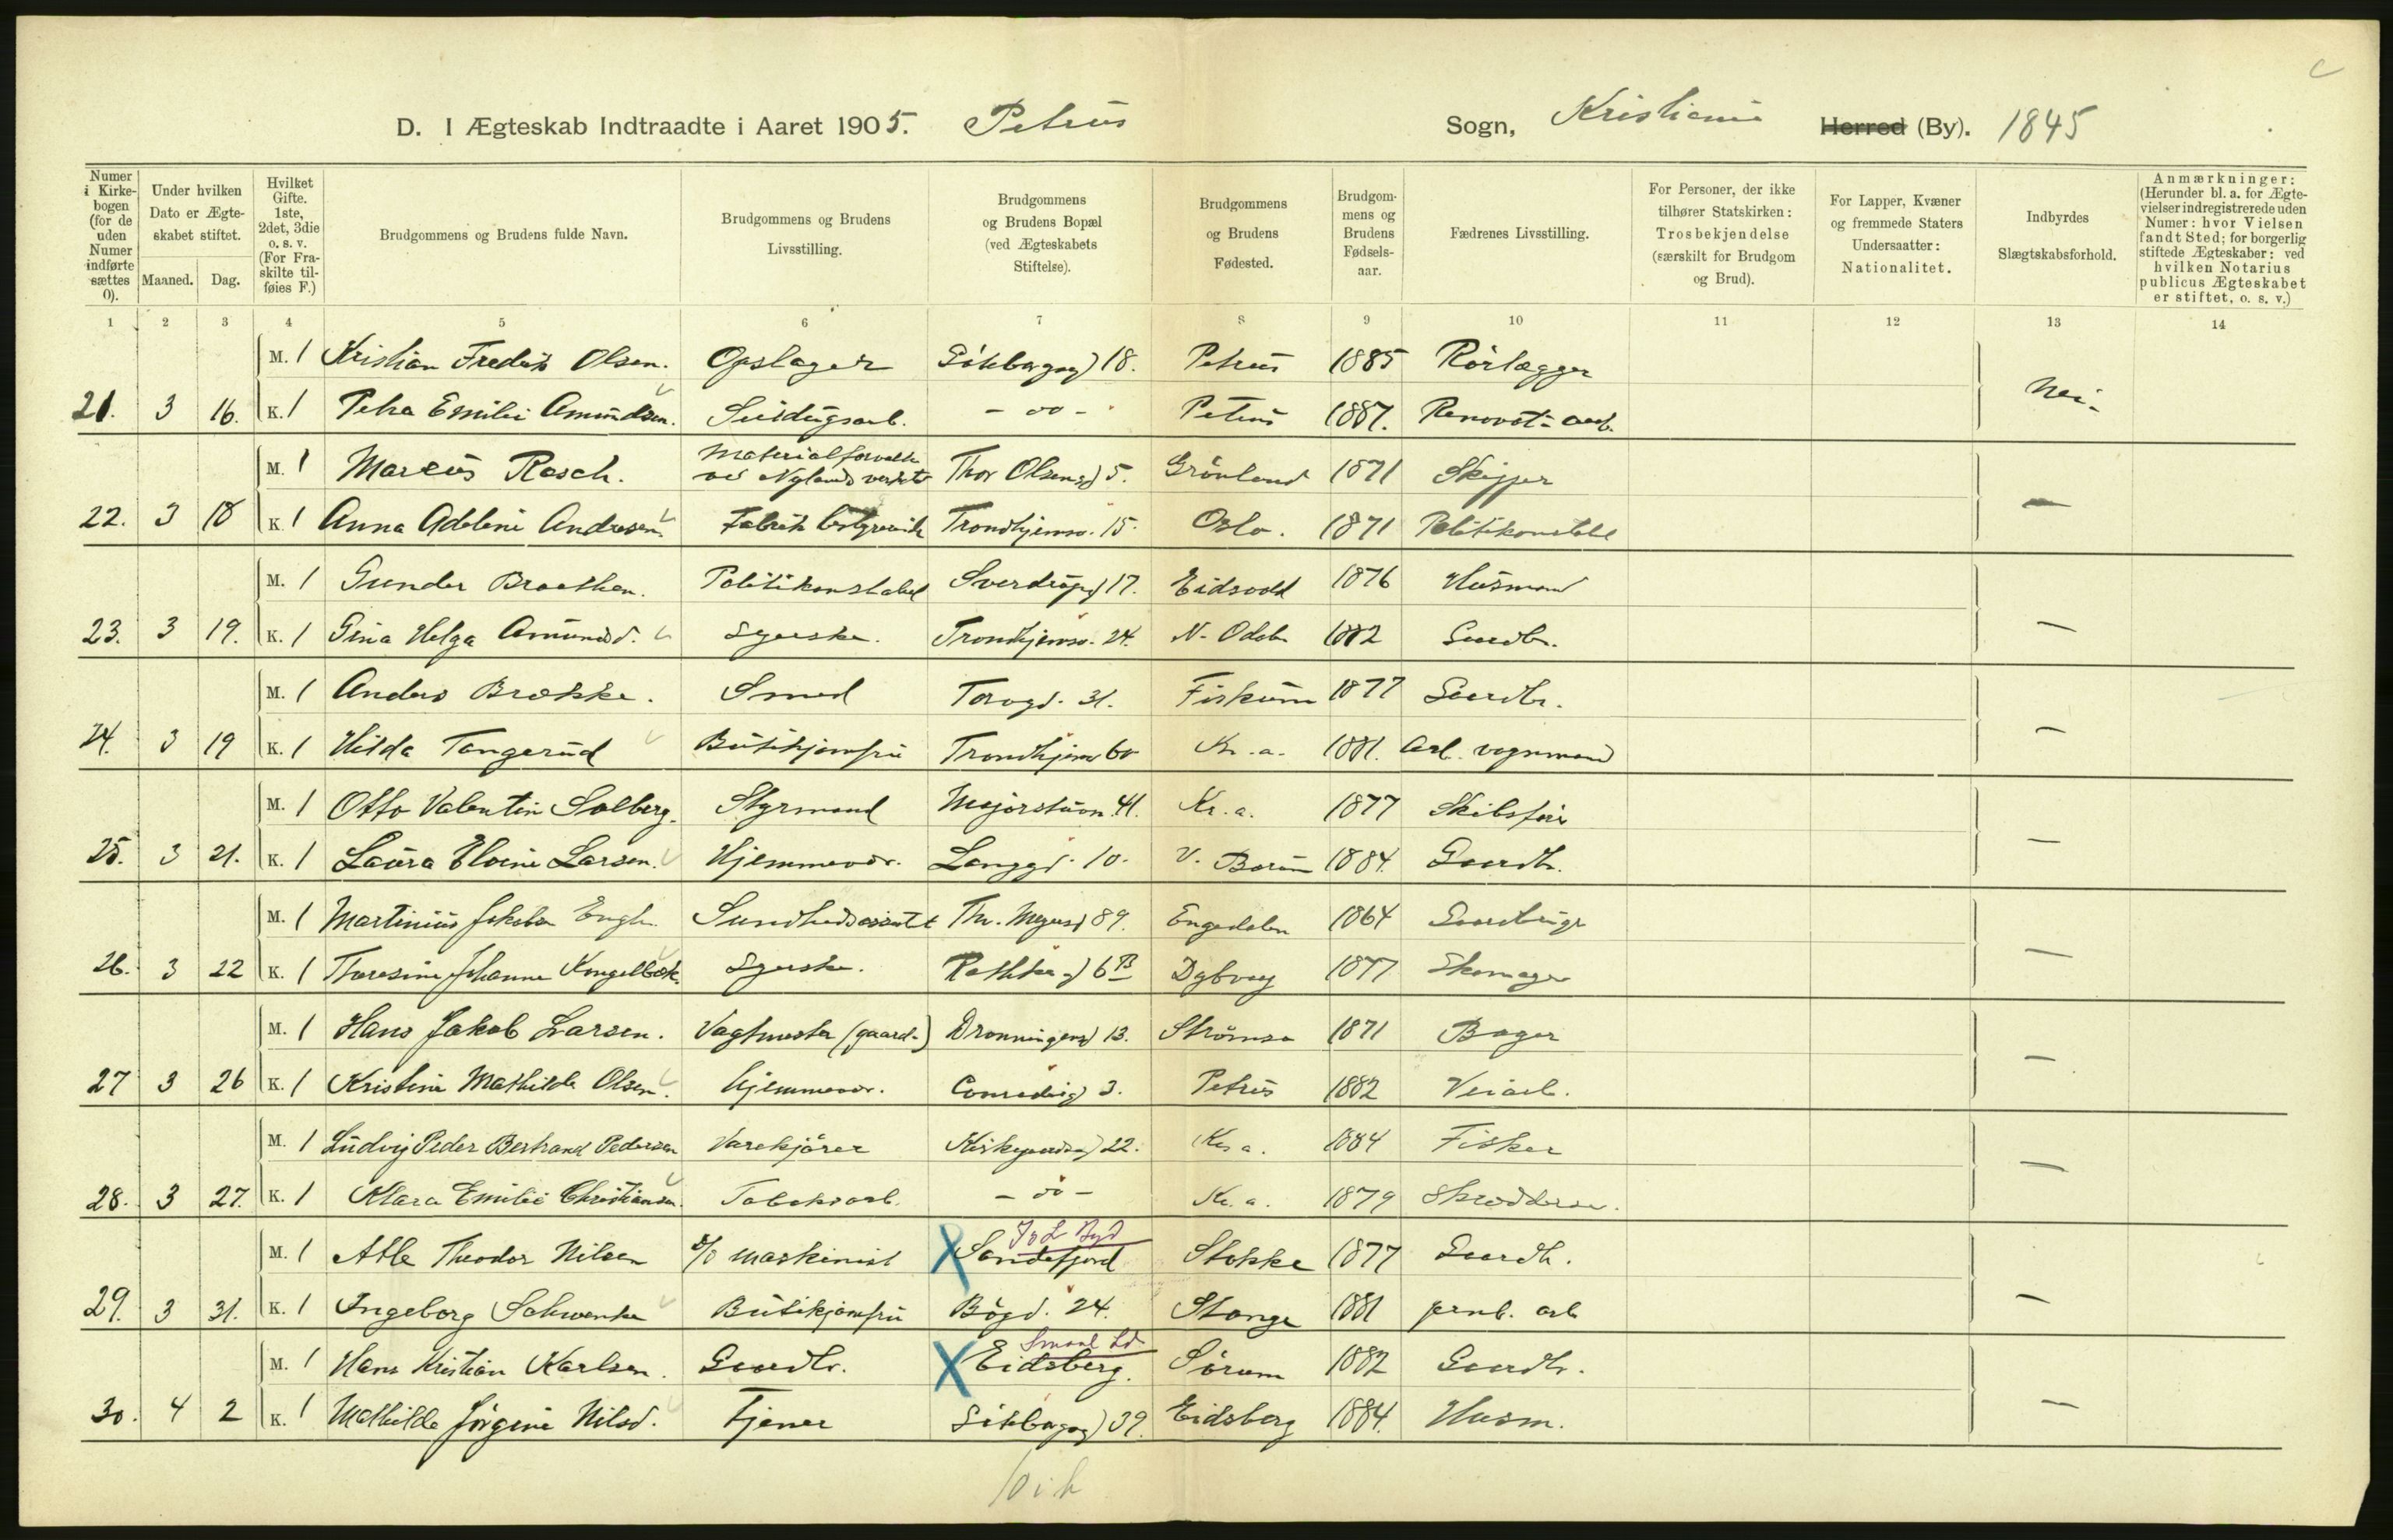 c
D. I Ægteskab Indtraadte i Aaret 1905. Petrus Sogn, Kristiania Herred (By). 1845
Numer i Kirkebogen (for de uden Numer indførte sættes 0).
Under hvilken Dato er Ægteskabet stiftet.
Maaned. Dag.
Hvilket Gifte. 1ste, 2det, 3die o. s. v. (For Fraskilte tilføies F.)
Brudgommens og Brudens fulde Navn.
Brudgommens og Brudens Livsstilling.
Brudgommens og Brudens Bopæl (ved Ægteskabets Stiftelse).
Brudgommens og Brudens Fødested.
Brudgommens og Brudens Fødselsaar.
Fædrenes Livsstilling.
For Personer, der ikke tilhører Statskirken: Trosbekjendelse (særskilt for Brudgom og Brud).
For Lapper, Kvæner og fremmede Staters Undersaatter: Nationalitet.
Indbyrdes Slægtskabsforhold.
Anmærkninger: (Herunder bl. a. for Ægtevielser indregistrerede uden Numer: hvor Vielsen fandt Sted; for borgerlig stiftede Ægteskaber: ved hvilken Notarius publicus Ægteskabet er stiftet, o. s. v.)
1 2 3 4 5 6 7 8 9 10 11 12 13 14
M. 1 Kristian Fredrik Olsen. Opslager 18. Petrus 1885 Rörlægger
21. 3 16. K. 1 Petra Emilie Amundsen. - oo - Petrus 1887. Renovat. arb. Nei.
M. 1 Marcus Rasch. Materialforvalt. ved Nylands verksted Thor Olsensgd 5. Grönland 1871 Skipper
22. 3 18 K. 1 Anna Adeline Andresen. Fabrik Trondhjemsv. 15. Oslo. 1871 Politikonstbl —
M. 1 Gunder Braathen. Politikonstabel Sverdrupsgd 17. Eidsvold 1876 Husmand
23. 3 19. K. 1 Gina Helga Amundsd. Syerske. Trondhjemsv. 24. N. Odal 1882 Gaardbr. —
M. 1 Anders Brække. Smed Torvgd. 31. Fiskum 1877 Gaardbr.
24. 3 19 K. 1 Hilda Tangerud Butikjomfru Trondhjemsv 60 Kr. a. 1881. Arb. vognmand —
M. 1 Otto Valentin Solberg. Styrmand Majorstuvn. 41. Kr. a. 1877 Skibsför
25. 3 21. K. 1 Laura Elvine Larsen. Hjemmevær. Langgd. 10. V. Bærum 1884. Gaardbr. —
M. 1 Martinius Jakobsen Engh. Sundhedsassistet Th. Meyersgd 89. Engedalen 1864 Gaardbruger
26. 3 22 K. 1 Theresine Johanne Kongelbæk. Syerske. Rathkesgd 6B Dybvaag 1877 Skomager —
M. 1 Hans Jakob Larsen. Vagtmester (gaard-) Dronningensgd 13. Strömsø 1871 Bager
27 3 26 K. 1 Kristine Mathilde Olsen. Hjemmevær. Conradisgd 3. Petrus 1882 Veiarb. —
M. 1 Ludvig Peder Bertrand Pedersen Varekjörer Kirkegaardsgd 22. Kr. a. 1884 Fisker
28. 3 27. K. 1 Klara Emilie Christiansen. Tobaksarb. - oo - Kr. a. 1879 Skræddersv. —
M. 1 Atle Theodor Nilsen D/S maskinist X Sandefjord Stokke 1877 Gaardbr.
29. 3 31. K. 1 Ingeborg Schwenke Butikjomfru Bögd. 24. Stange 1881 jernb. arb —
M. 1 Hans Kristian Karlsen. Gaardbr. X Eidsberg. Sörum 1882 Gaardbr.
30. 4 2 K. 1 Mathilde Jörgine Nilsd. Tjener 39. Eidsberg 1884. Husm. —